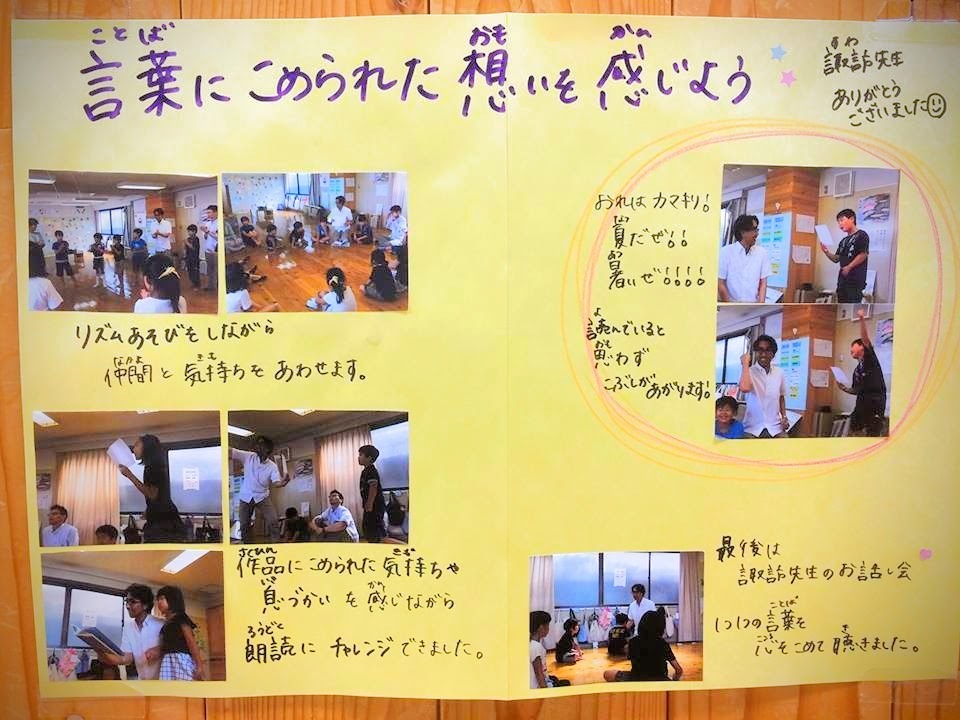 言葉にこめられた想いを感じよう
ことば おも かん
諏訪先生
すわ
ありがとう
ございました
リズムあそびをしながら
仲間と気持ちをあわせます。
なかま きも
作品にこめられた気持ちや
さくひん きも
息づかいを感じながら
いき かん
朗読にチャレンジできました。
ろうどく
おれはカマキリ!
夏だぜ!!
なつ
暑いぜ!!!!
あつ
読んでいると
よ
思わず
おも
こぶしがあがります!
最後は
さいご
諏訪先生のお話し会
1つ1つの言葉を
ことば
心をこめて聴きました。
こころ き